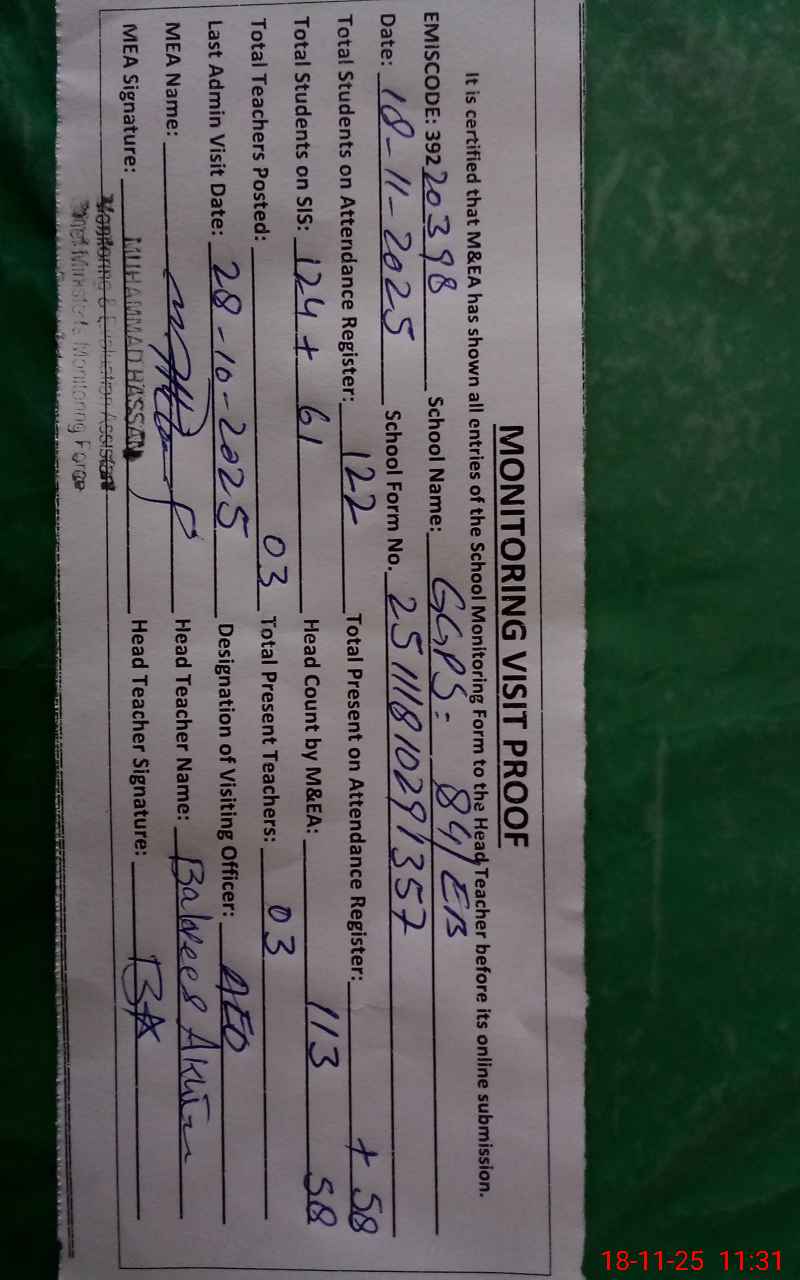 MONITORING VISIT PROOF
It is certified that M&EA has shown all entries of the School Monitoring Form to the Head Teacher before its online submission.
EMISCODE: 39220398 School Name: GGPS: 84/EB
Date: 18-11-2025 School Form No. 251111810291357
Total Students on Attendance Register: 122 Total Present on Attendance Register: + 58
Total Students on SIS: 124 + 61 Head Count by M&EA: 113 58
Total Teachers Posted: 03 Total Present Teachers: 03
Last Admin Visit Date: 28-10-2025 Designation of Visiting Officer: AEO
MEA Name: Head Teacher Name: Balqees Akhtar
MEA Signature: MUHAMMAD HASSAN Head Teacher Signature: BA
Monitoring & Evaluation Assistant
Chief Minister's Monitoring Force
18-11-25 11:31